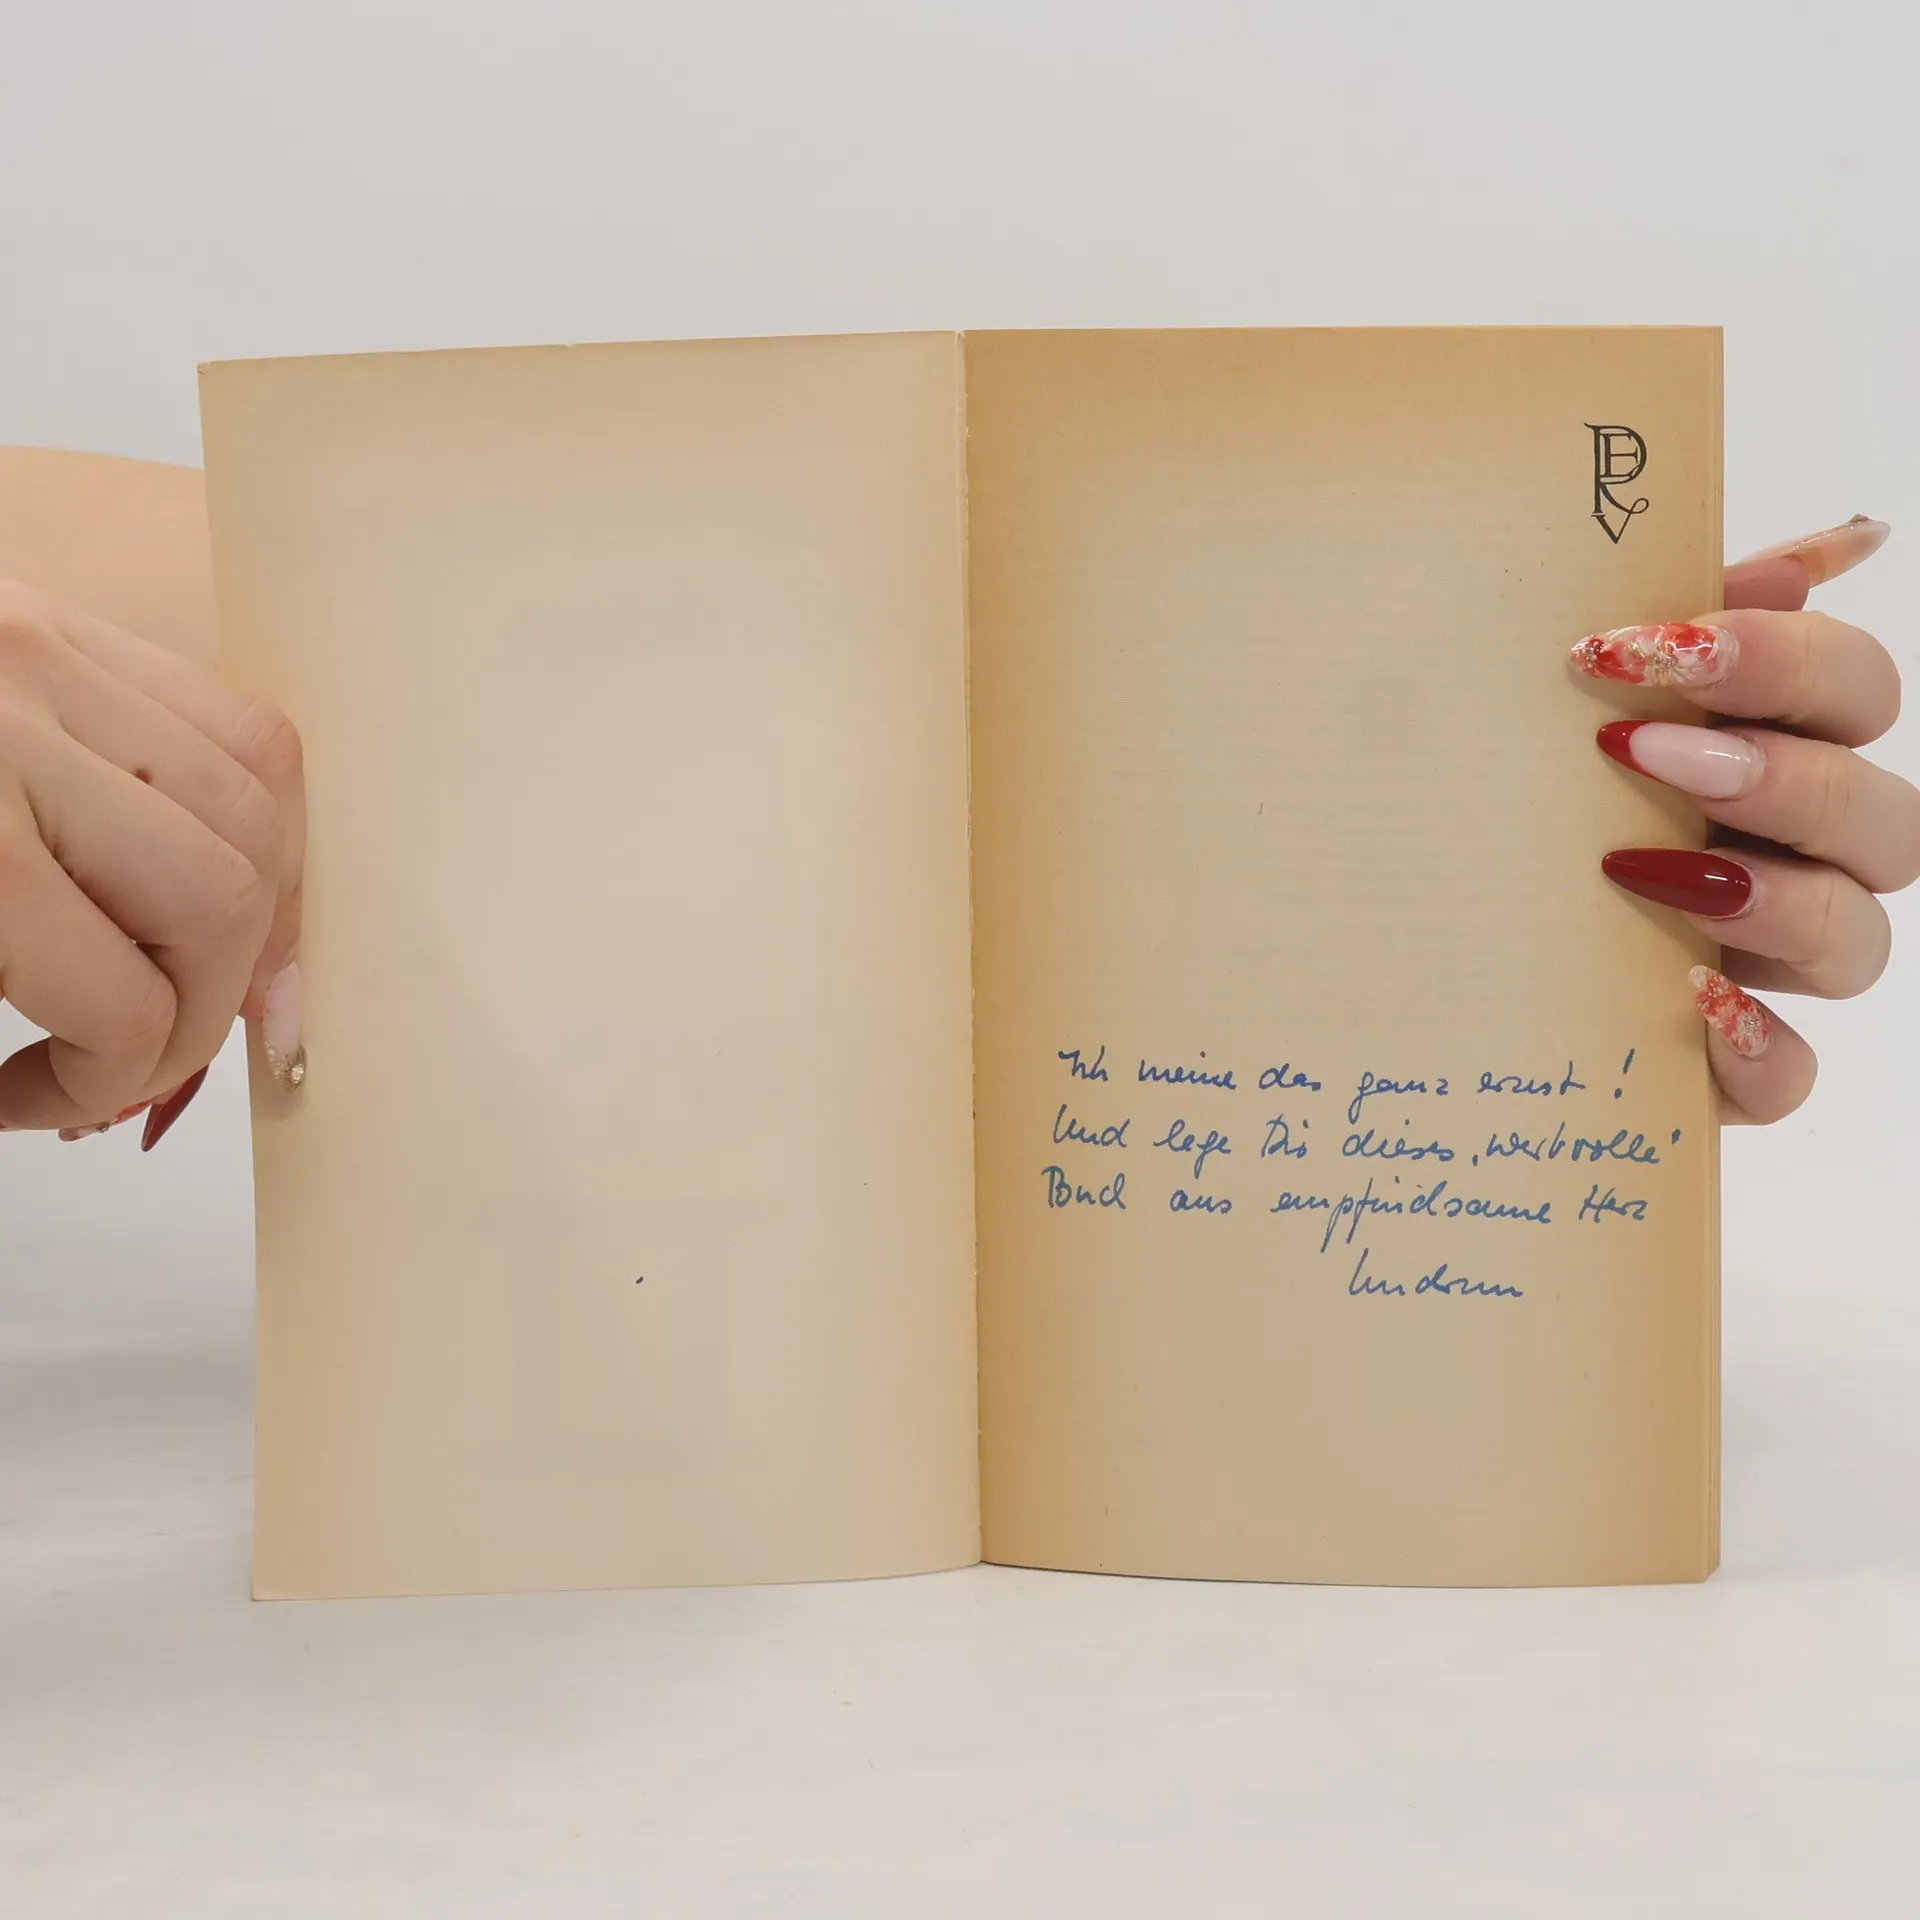 PERV
Ich meine das ganz ernst!
Und lege Dir dieses "wertvolle"
Buch ans empfindsame Herz
Gudrun